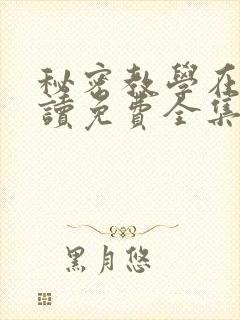 秘密教學在
讀免費全集
黑月悠